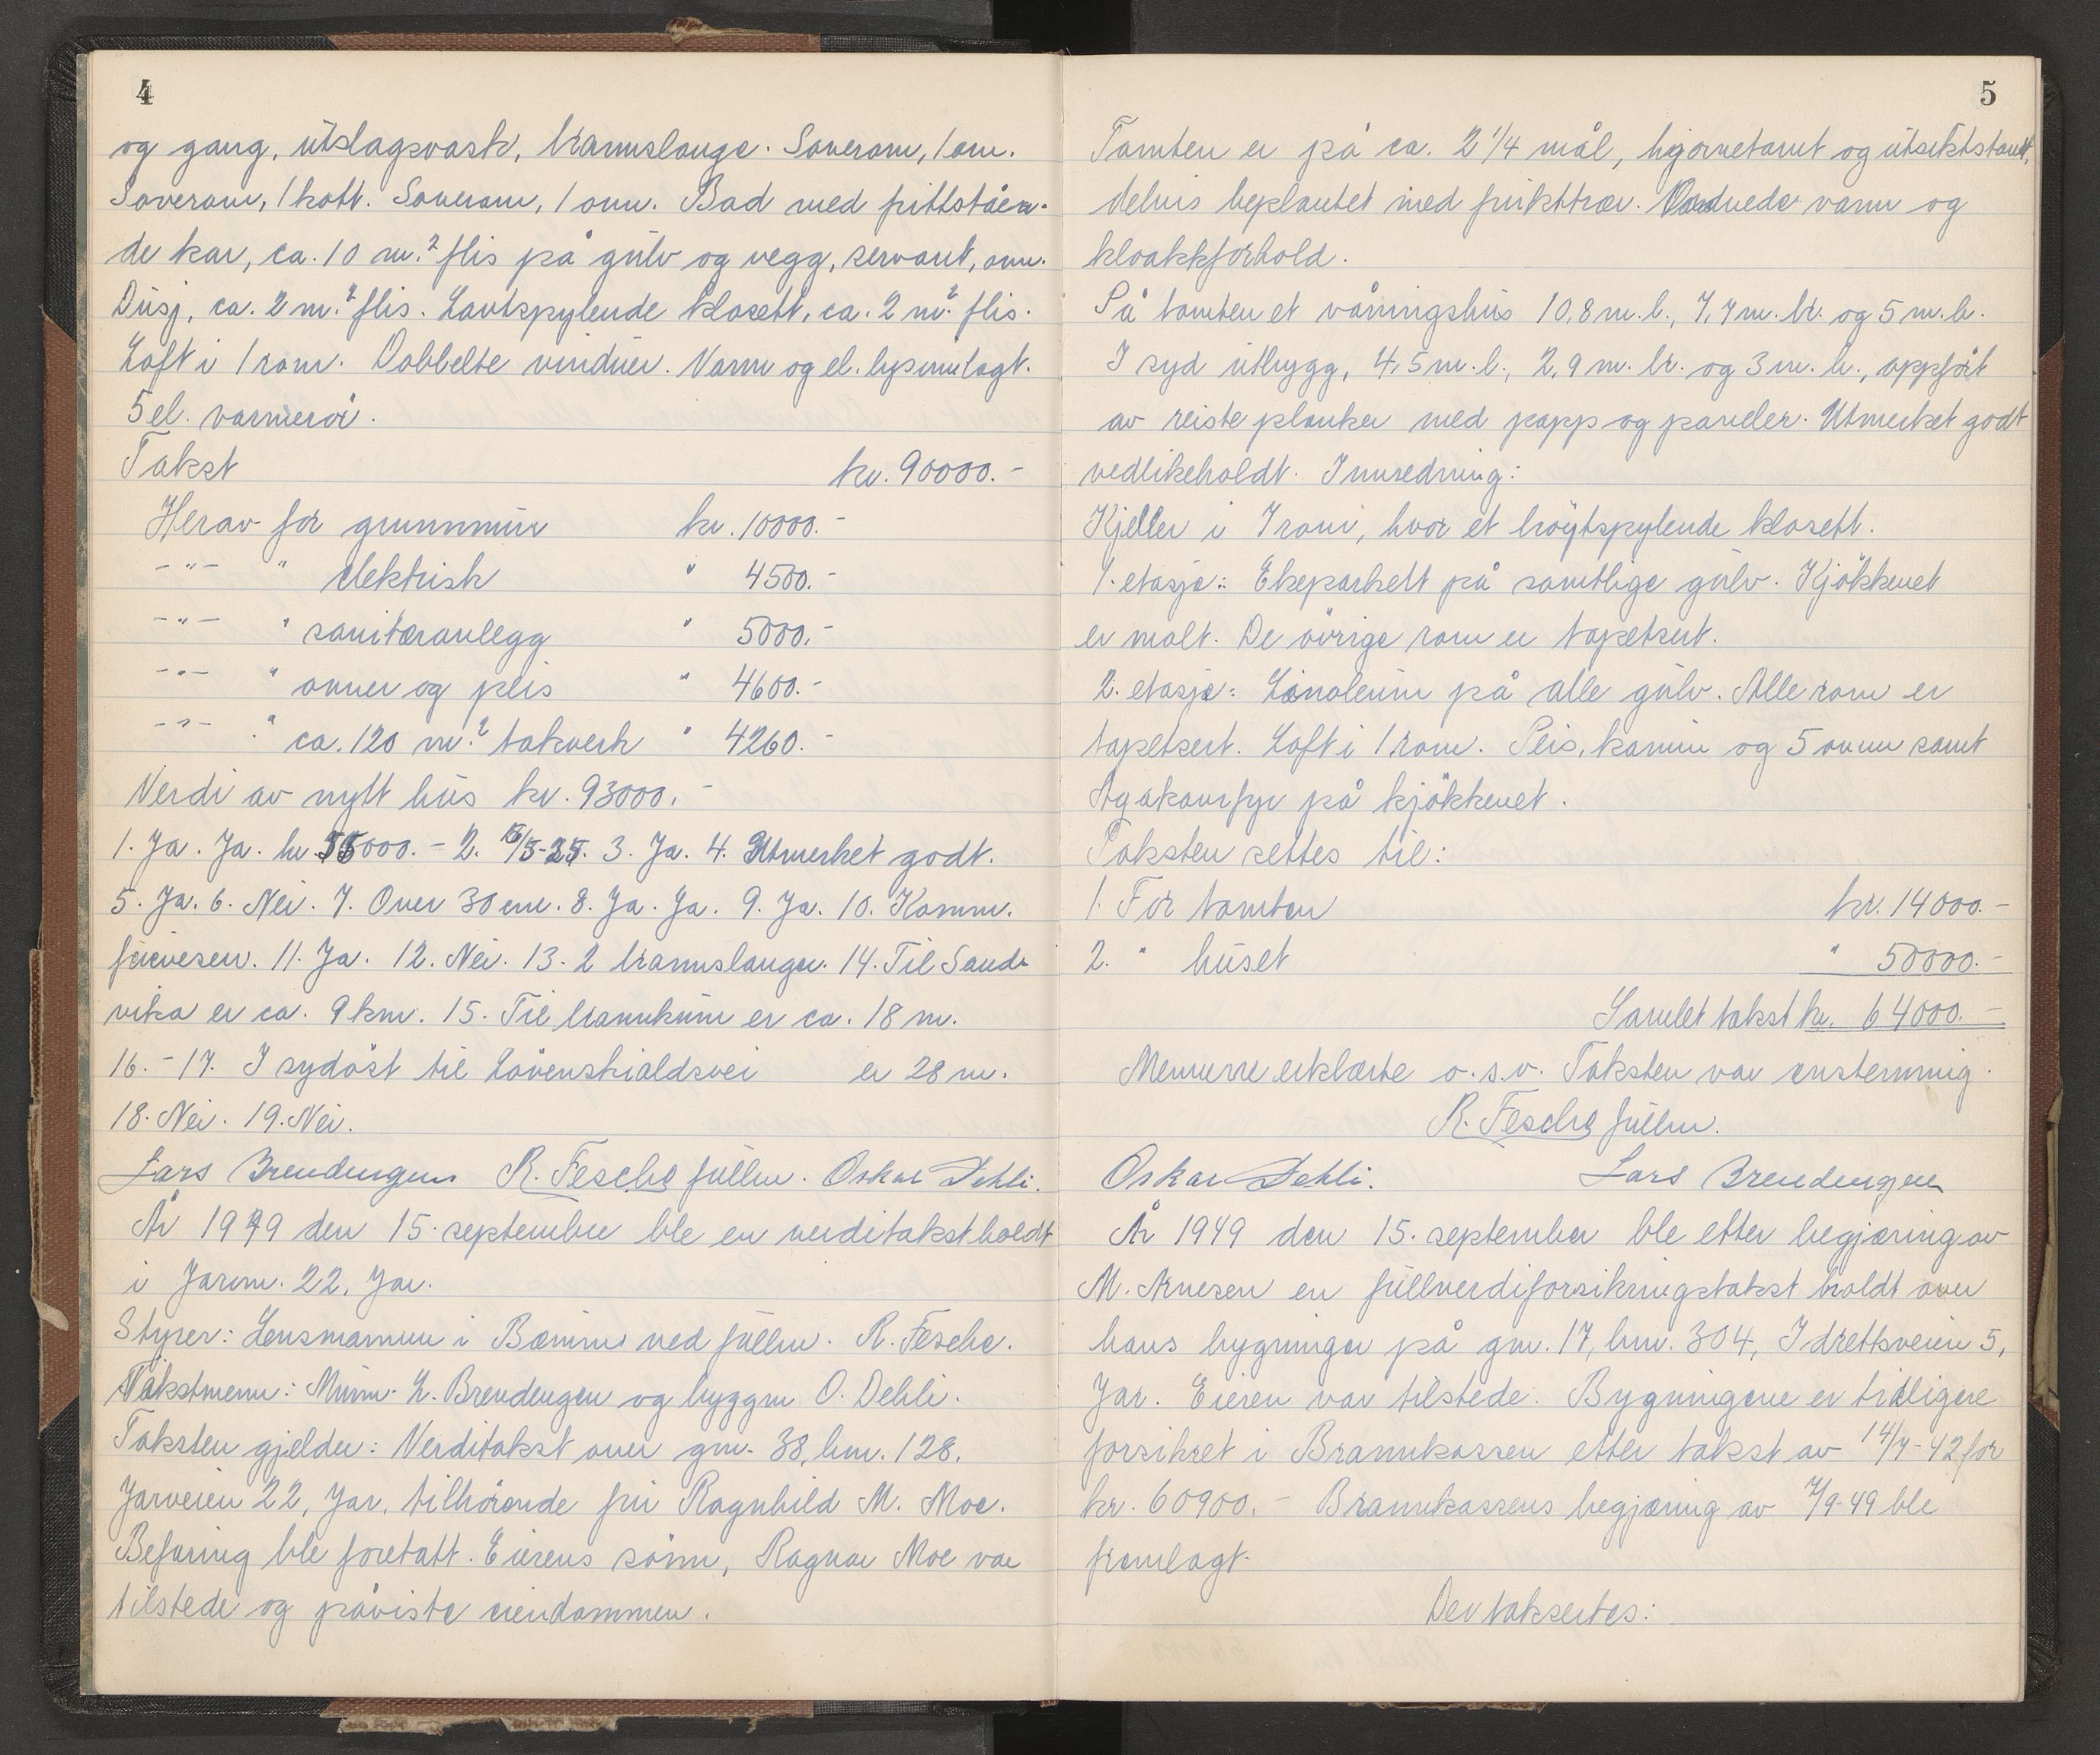 4
og gang, utslagsvask, brannslange. Soverom, 1 ovn.
Soverom, 1 kott. Soverom, 1 ovn. Bad med frittståen-
de kar, ca. 10 m.² flis på gulv og vegg, servant, ovn.
Dusj, ca. 2 m.² flis. Lavtspylende klosett, ca. 2 m.² flis.
Loft i 1 rom. Dobbelte vinduer. Vann og el. lys innlagt.
5 el. varmerör.
Takst kr. 90000.-
Herav for grunnmur kr. 10000.-
-"- " elektrisk " 4500.-
-"- " sanitæranlegg " 5000.-
-"- " ovner og peis " 4600.-
-"- " ca. 120 m.² takverk " 4260.-
Verdi av nytt hus kr. 93000.-
1. Ja. Ja. kr. 000.- 2. 3. Ja. 4. Utmerket godt.
5. Ja. 6. Nei. 7. Over 30 cm. 8. Ja. Ja. 9. Ja. 10. Komm.
feievesen. 11. Ja. 12. Nei. 13. 2 brannslanger. 14. Til Sand-
vika er ca. 9 km. 15. Til brannkum er ca. 18 m.
16. - 17. I sydöst til Lövenskioldsvei er 28 m.
18. Nei. 19. Nei.
Lars Brendengen R. Fesche fullm. Oskar Dehli.
År 1949 den 15. september ble en verditakst holdt
i Jarvn. 22, Jar.
Styrer: Lensmannen i Bærum ved fullm. R. Fesche.
Takstmenn: Murm. L. Brendengen og byggm O. Dehli.
Taksten gjelder: Verditakst over gnr. 38, bnr. 128,
Jarveien 22, Jar, tilhörende fru Ragnhild M. Moe.
Befaring ble foretatt. Eierens sönn, Ragnar Moe var
tilstede og påviste eiendommen.
5
Tomten er på ca. 2 1/4 mål, hjörnetomt og utsiktstomt,
delvis beplantet med frukttrær. Ordnede vann og
kloakkforhold.
På tomten et våningshus 10,8 m. l., 7,7 m. br. og 5 m. h.
I syd utbygg, 4,5 m. l., 2,9 m. br. og 3 m. h., oppfört
av reiste planker med papp og paneler. Utmerket godt
vedlikeholdt. Innredning:
Kjeller i 7 rom, hvor et höytspylende klosett.
1. etasje: Ekeparkett på samtlige gulv. Kjökkenet
er malt. De övrige rom er tapetsert.
2. etasje: Linoleum på alle gulv. Alle rom er
tapetsert. Loft i 1 rom. Peis, kamin og 5 ovner samt
Agakomfyr på kjökkenet.
Taksten settes til:
1. For tomten kr. 14000.-
2. " huset " 50000.-
Samlet takst kr. 64000.-
Mennene erklærte o.s.v. Taksten var enstemmig.
R. Fesche fullm.
Oskar Dehli. Lars Brendengen
År 1949 den 15. september ble etter begjæring av
M. Arnesen en fullverdiforsikringstakst holdt over
hans bygninger på gnr. 17, bnr. 304, Idrettsveien 5,
Jar. Eieren var tilstede. Bygningene er tidligere
forsikret i Brannkassen etter takst av 14/7-42 for
kr. 60900.- Brannkassens begjæring av 7/9-49 ble
fremlagt.
Der takseertes: